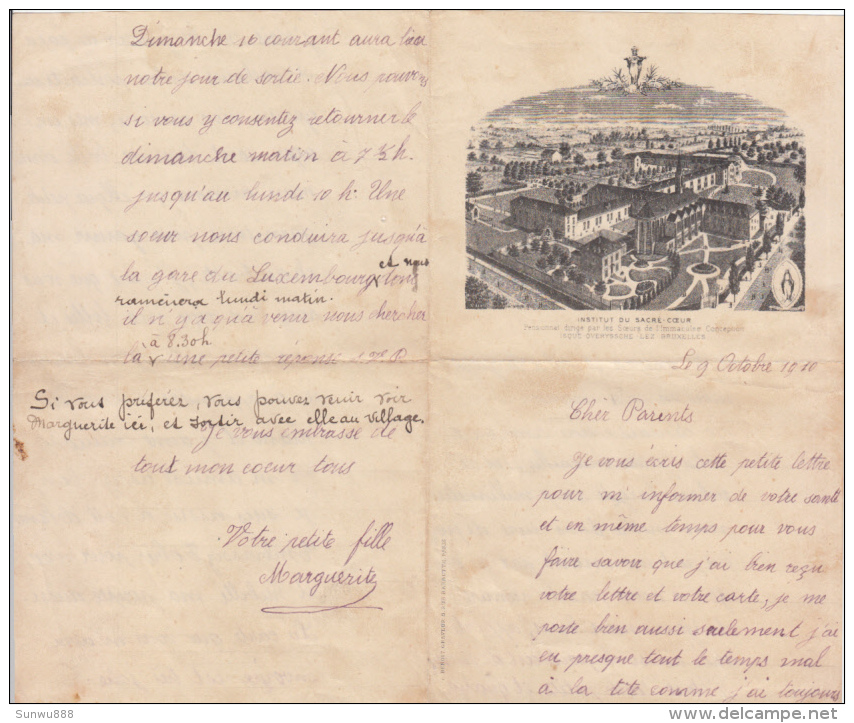 INSTITUT DU SACRÉ-CŒUR
Pensionnat dirigé par les Sœurs de l'Immaculée Conception
OVERYSSCHE LEZ BRUXELLES
Le 9 Octobre 1910
Cher Parents
Je vous écris cette petite lettre
pour m'informer de votre santé
et en même temps pour vous
faire savoir que j'ai bien reçu
votre lettre et votre carte, je me
porte bien aussi seulement j'ai
eu presque tout le temps mal
à la tête comme j'ai toujours
Dimanche 16 courant aura lieu
notre jour de sortie. Nous pouvons
si vous y consentez retourner le
dimanche matin à 7 ½ h.
jusqu'au lundi 10 h. Une
soeur nous conduira jusqu'à
et nous
la gare du Luxembourg
ramènera lundi matin.
il n'y a qu'à venir nous chercher
à 8.30h
là une petite réponse s.v.p.
Si vous préférez, vous pouvez venir voir
Marguerite ici, et sortir avec elle au village.
Je vous embrasse de
tout mon coeur tous
Votre petite fille
Marguerite
Sunwu888
www.delcampe.net